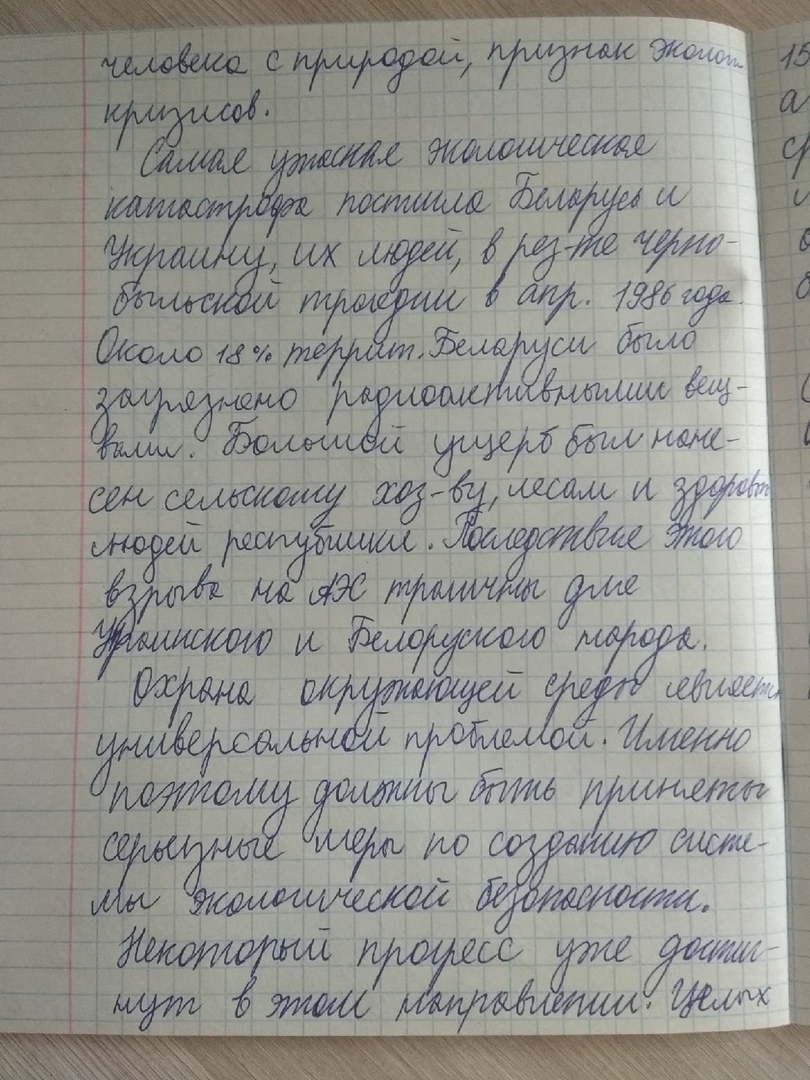 человека с природой, признак эколог.
кризисов.
Самая ужасная экологическая
катастрофа постигла Беларусь и
Украину, их людей, в рез-те черно-
быльской трагедии в апр. 1986 года.
Около 18% террит. Беларуси было
загрязнено радиоактивными вещ-
вами. Большой ущерб был нане-
сен сельскому хоз-ву, лесам и здоровью
людей республики. Последствия этого
взрыва на АЭС трагичны для
Украинского и Белоруского народа.
Охрана окружающей среды является
универсальной проблемой. Именно
поэтому должны быть приняты
серьезные меры по созданию систе-
мы экологической безопасности.
Некоторый прогресс уже достиг-
нут в этом направлении. Целых
15
а
ср